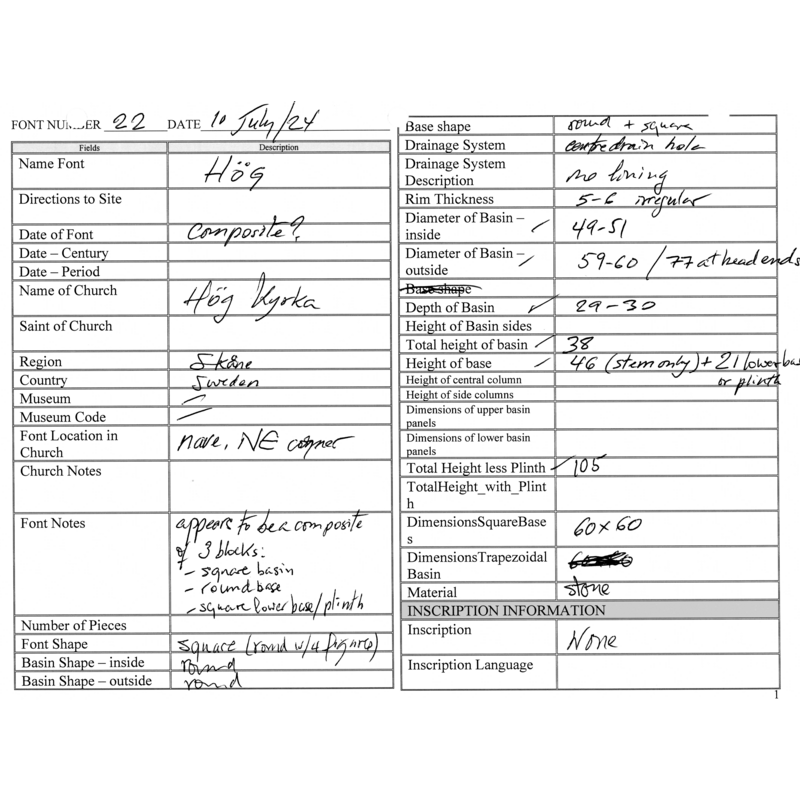 FONT NUMBER 22 DATE 10 July/24
Fields Description
Name Font Hög
Directions to Site
Date of Font composite?
Date – Century
Date – Period
Name of Church Hög Kyrka
Saint of Church
Region Skåne
Country Sweden
Museum –
Museum Code –
Font Location in nave, NE corner
Church
Church Notes
Font Notes appears to be a composite
of 3 blocks:
– square basin
– round base
– square lower base/plinth
Number of Pieces
Font Shape square (round w/4 figures)
Basin Shape – inside round
Basin Shape – outside round
Base shape round + square
Drainage System centre drain hole
Drainage System no lining
Description
Rim Thickness 5-6 irregular
Diameter of Basin – 49-51
inside
Diameter of Basin – 59-60 / 77 at head ends
outside
Base shape
Depth of Basin 29-30
Height of Basin sides
Total height of basin 38
Height of base 46 (stem only) + 21 lower base
or plinth
Height of central column
Height of side columns
Dimensions of upper basin
panels
Dimensions of lower basin
panels
Total Height less Plinth 105
TotalHeight_with_Plint
h
DimensionsSquareBase 60x60
s
DimensionsTrapezoidal
Basin
Material stone
INSCRIPTION INFORMATION
Inscription None
Inscription Language
1